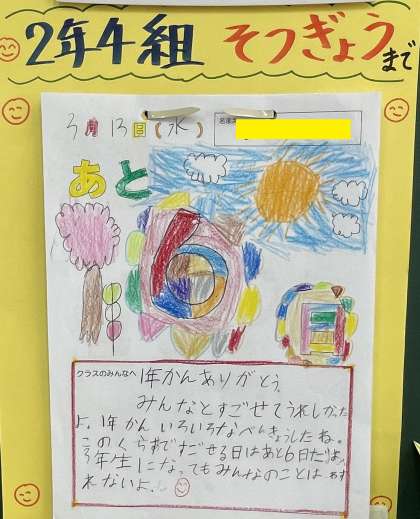 2年4組 そつぎょうまで
3月13日(水)
あと
6日
クラスのみんなへ 1年かんありがとう。
みんなとすごせてうれしかった
よ。1年かんいろいろなべんきょうしたね。
このくらすですごせる日はあと6日だよ。
3年生になってもみんなのことはわす
れないよ。